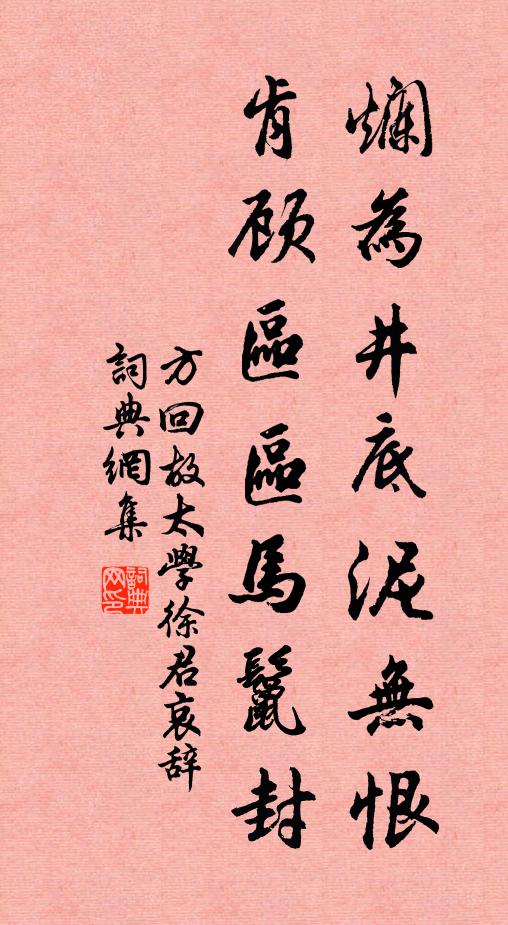 爛為井底泥無恨
肯顧區區馬鬣封
方回故太學徐君哀辞
詞典網集
詞典网印